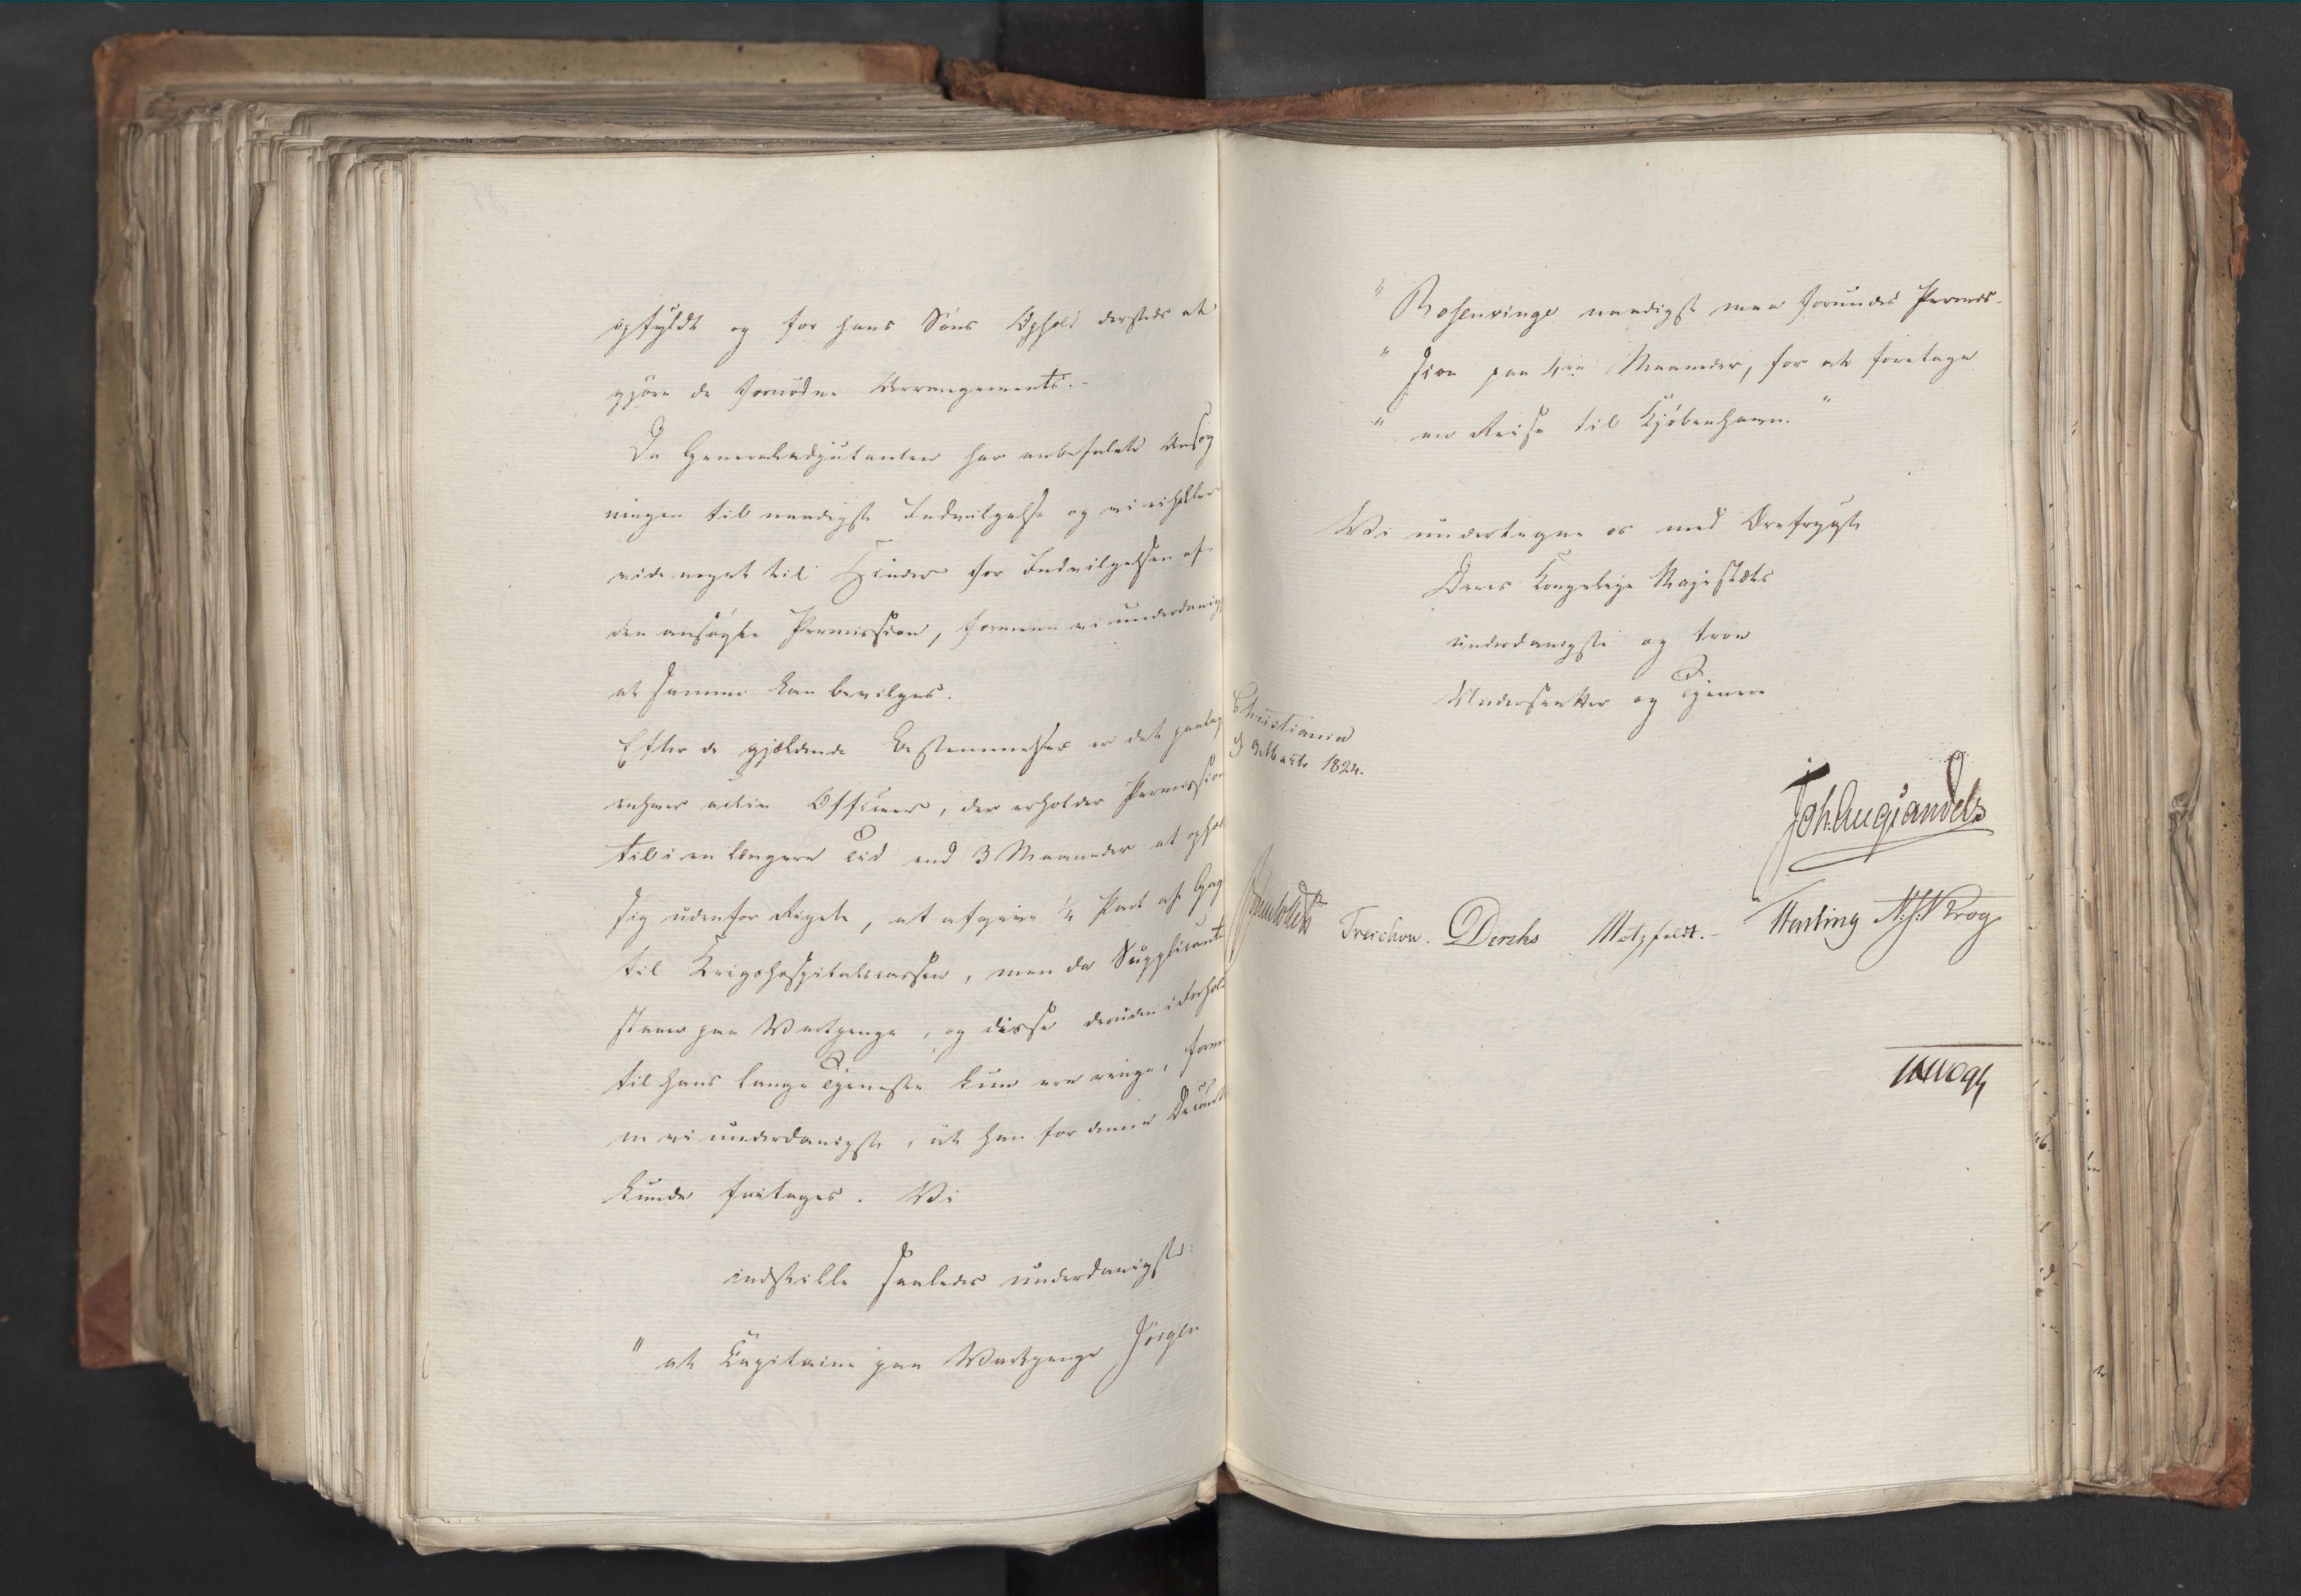 opfyldt og for hans Søns Ophold dersteds at
gjøre de fornødne Arrangements.-
Da Generaladjutanten har anbefalet Ansøg
ningen til naadigst Indvilgelse og vi ei heller
vide noget til Hinder for Indvilgelsen af
den ansøgte Permission, formene vi underdanigst
at samme kan bevilges.
Efter de gjældende Bestemmelser er det paalag
enhver activ Officeer, der erholder Permission
til i en længere Tid end 3 Maaneder at ophol
sig udenfor Riget, at afgive ¼ Part af Gag
til Krigshospitalscassen, men da Supplicante
staaer paa Vartpenge, og disse desuden i Forhol
til hans lange Tjeneste kun ere ringe, form
ne vi underdanigst, at han for denne Decourt
kunde fritages. Vi
indstille saaledes underdanigst:
" at Capitaine paa Vartpenge Jørgen
" Rosenvinge naadigst maa forundes Permis-
" sion paa Maaneder, for at foretage
" en Reise til Kjøbenhavn. "
Vi undertegne os med Ærefrygt
Deres Kongelige Majestæts
underdanigste og troe
Undersaatter og Tjenere
Christiania
d 9 Marts 1824.
Joh. Aug Sandels
Sommerhielm Treschow. Diriks Motzfeldt.- Hasting N. J. Krog
LMVogt